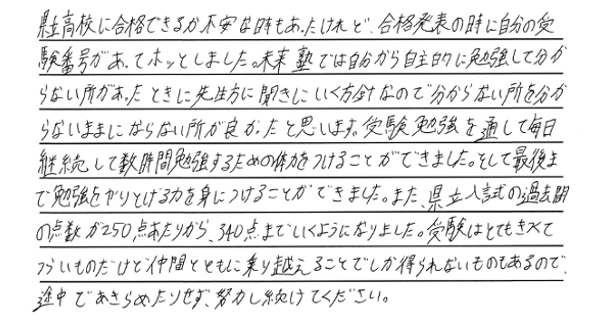 県立高校に合格できるか不安な時もあったけれど、合格発表の時に自分の受
験番号があってホッとしました。未来塾では自分から自主的に勉強して分か
らない所があったときに先生方に聞きにいく方針なので分からない所を分か
らないままにならない所が良かったと思います。受験勉強を通して毎日
継続して数時間勉強するための体力をつけることができました。そして最後ま
で勉強をやりとげる力を身につけることができました。また、県立入試の過去問
の点数が250点あたりから、340点までいくようになりました。受験はとてもきつくて
つらいものだけど仲間とともに乗り越えることでしか得られないものもあるので、
途中であきらめたりせず、努力し続けてください。